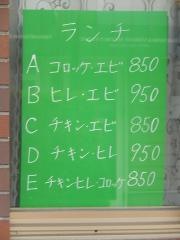 ランチ
A コロッケ・エビ 850
B ヒレ・エビ 950
C チキン・エビ 850
D チキン・ヒレ 950
E チキンヒレ・コロッケ 850